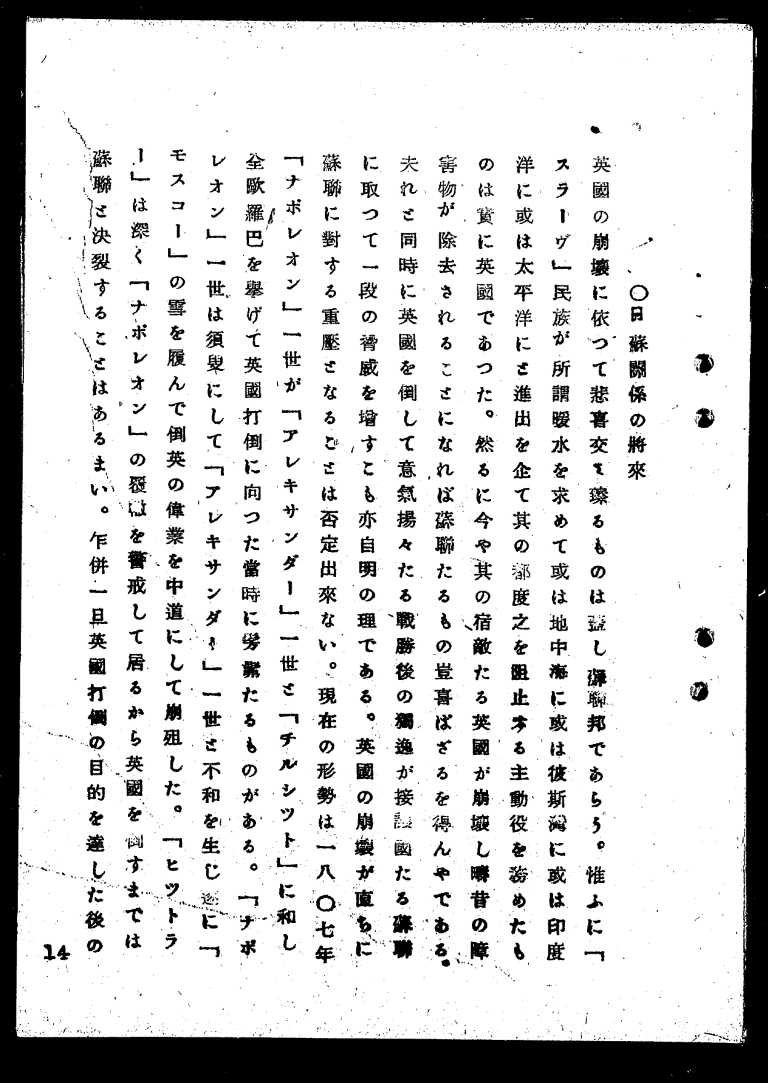 〇日蘇關係の將來
英國の崩壞に依つて悲喜交々臻るものは蓋し蘇聯邦であらう。惟ふに「
スラーヴ」民族が所謂暖水を求めて或は地中海に或は彼斯灣に或は印度
洋に或は太平洋にと進出を企て其の都度之を阻止する主動役を務めたも
のは實に英國であつた。然るに今や其の宿敵たる英國が崩壞し疇昔の障
害物が除去されることになれば蘇聯たるもの豈喜ばざるを得んやである。
夫れと同時に英國を倒して意氣揚々たる戰勝後の獨逸が接讓國たる蘇聯
に取つて一段の脅威を增すこも亦自明の理である。英國の崩壞が直ちに
蘇聯に對する重壓となることは否定出來ない。現在の形勢は一八〇七年
「ナポレオン」一世が「アレキサンダー」一世と「チルシツト」に和し
全歐羅巴を擧げて英國打倒に向つた當時に髣髴たるものがある。「ナポ
レオン」一世は須臾にして「アレキサンダー」一世と不和を生じ遂に「
モスコー」の雪を履んで倒英の偉業を中道にして崩殂した。「ヒツトラ
ー」は深く「ナポレオン」の覆轍を警戒して居るから英國を倒すまでは
蘇聯と決裂することはあるまい。乍併一旦英國打倒の目的を達した後の
14